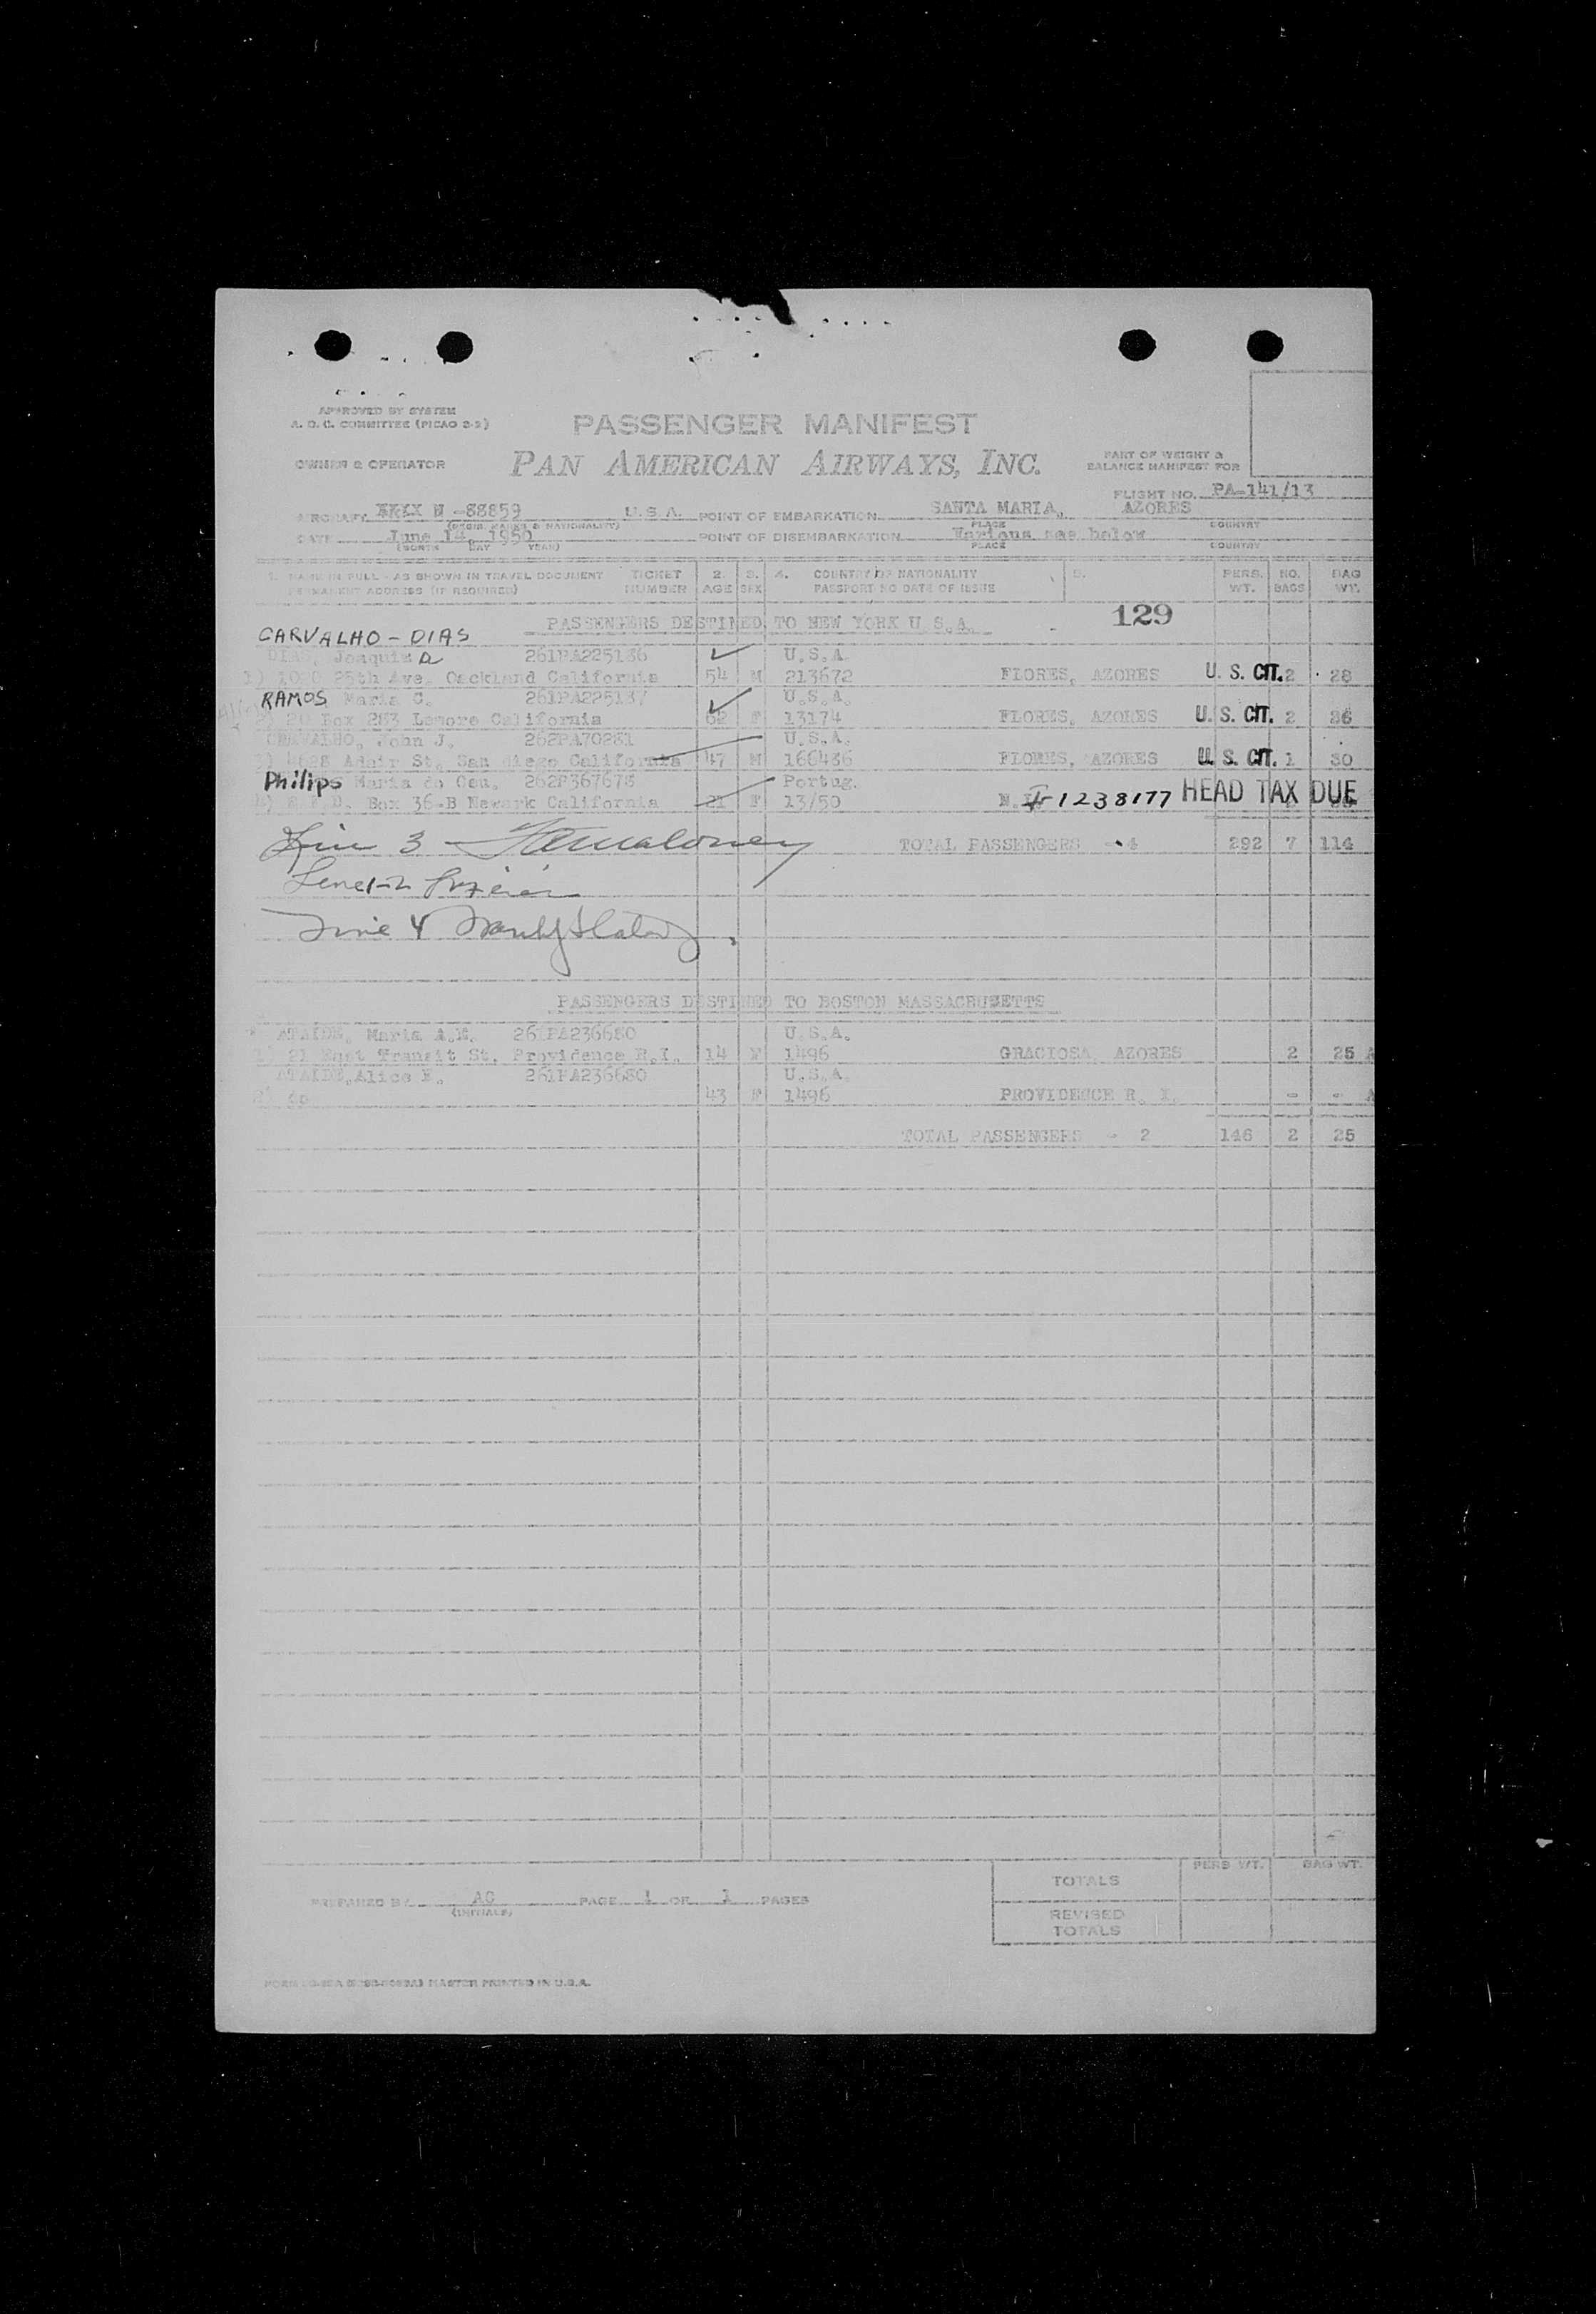 APPROVED BY SYSTEM
A. O. C. COMMITTEE (PICAO 2-2)
PASSENGER MANIFEST
OWNER & OPERATOR
PAN AMERICAN AIRWAYS, INC.
PART OF WEIGHT &
BALANCE MANIFEST FOR
FLIGHT NO. PA-141/13
AIRCRAFT N -88859 U.S.A. POINT OF EMBARKATION SANTA MARIA, AZORES
(REGIS. MARKS & NATIONALITY) PLACE COUNTRY
DATE June 14, 1950 POINT OF DISEMBARKATION Various see below
(MONTH DAY YEAR) PLACE COUNTRY
1. NAME IN FULL - AS SHOWN IN TRAVEL DOCUMENT TICKET 2. 3. 4. COUNTRY OF NATIONALITY 5. PERS. NO. BAG
PERMANENT ADDRESS (IF REQUIRED) NUMBER AGE SEX PASSPORT NO DATE OF ISSUE WT. BAGS WT.
129
PASSENGERS DESTINED TO NEW YORK U.S.A.
CARVALHO-DIAS
DIAS, Joaquim 261PA225136 U.S.A.
1) 25th Ave. Oackland California 54 M 213672 FLORES, AZORES U.S. CIT. 2 28
RAMOS Maria C. 261PA225137 U.S.A.
Box 283 Lemore California 62 F 13174 FLORES, AZORES U.S. CIT. 2 26
John J. 262PA70281 U.S.A.
Adair St. San diego California 47 M 166486 FLORES, AZORES U.S. CIT. 1 30
Philips Maria do Ceu. 262P367678 Portug.
Box 36-B Newark California 21 F 13/50 1238177 HEAD TAX DUE
Line 3
TOTAL PASSENGERS - 4 292 7 114
Line 4
PASSENGERS DESTINED TO BOSTON MASSACHUSETTS
ATAIDE, Maria A.M. 261PA236680 U.S.A.
1) 21 East Transit St. Providence R.I. 14 F 1496 GRACIOSA, AZORES 2 25 A
ATAIDE, Alice F. 261PA236680 U.S.A.
2) do 43 F 1496 PROVIDENCE R. I. - - A
TOTAL PASSENGERS - 2 146 2 25
PERS WT. BAG WT.
TOTALS
PREPARED BY AC PAGE 1 OF 1 PAGES
(INITIALS)
REVISED
TOTALS
MASTER PRINTED IN U.S.A.